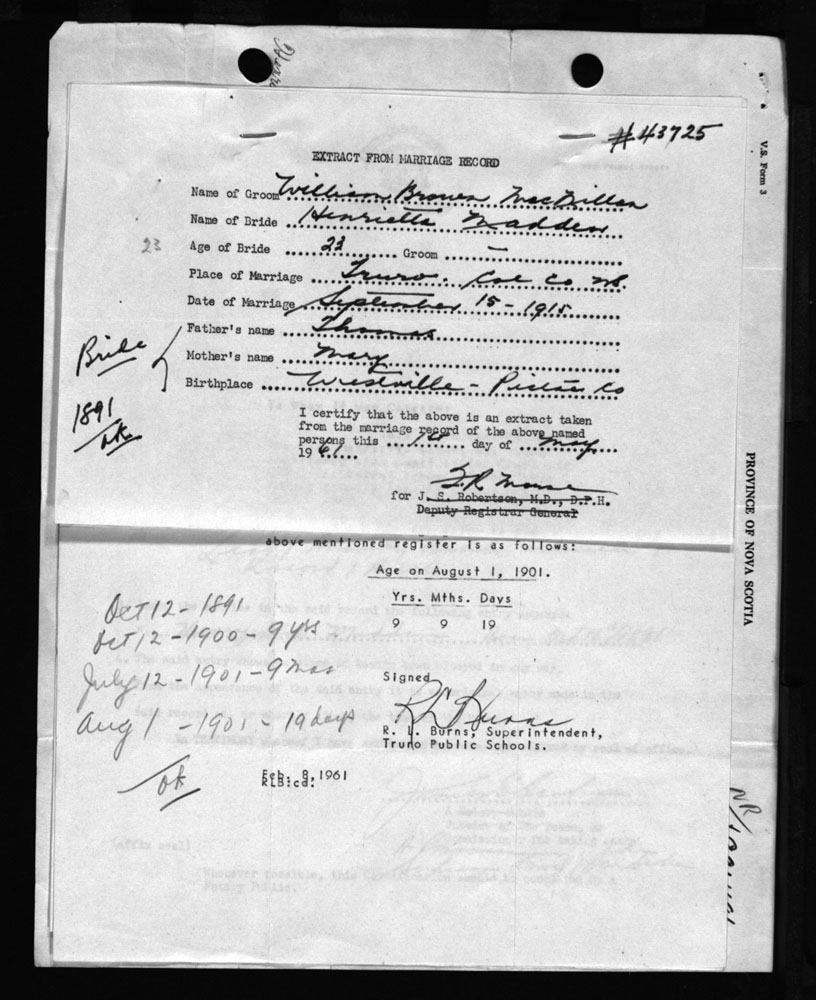 #43725
EXTRACT FROM MARRIAGE RECORD
Name of Groom William Brown MacMillan
Name of Bride Henrietta Madden
23
Age of Bride 23 Groom —
Place of Marriage Truro. Col Co NS.
Date of Marriage September 15 - 1915
Father's name Thomas
Mother's name Mary
Birthplace Westville - Pictou Co
Bride
1891
ok
I certify that the above is an extract taken
from the marriage record of the above named
persons this 1st day of May
1961
for J. S. Robertson, M.D., D.P.H.
Deputy Registrar General
above mentioned register is as follows:
Age on August 1, 1901.
Yrs. Mths. Days
9 9 19
Oct 12 - 1891
Oct 12 - 1900 - 9 yrs
July 12 - 1901 - 9 mos
Aug 1 - 1901 - 19 days
ok
Signed
R L Burns
R. L. Burns, Superintendent,
Truro Public Schools.
Feb. 8, 1961
RLB:cd:
(affix seal)
Whenever possible, this
Notary Public.
V.S. Form 3
PROVINCE OF NOVA SCOTIA